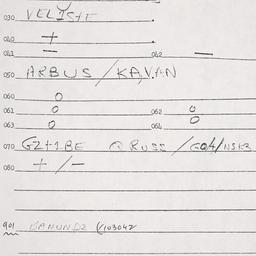 030 VELISTE
040 +
041 — 042 —
050 ARBUS / KAVAN
060 0
061 0 062 0
063 0 064 0
070 GZ+1BE @ RUSS /
080 + / -
901